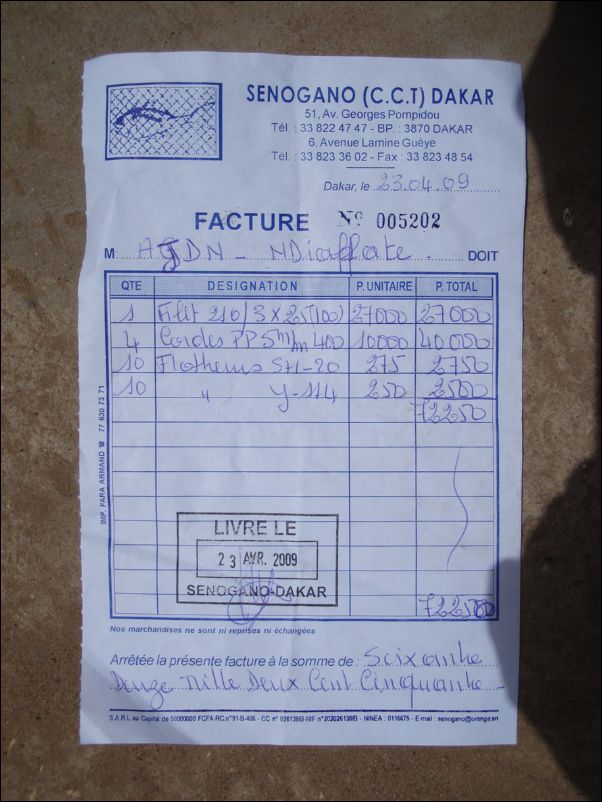 SENOGANO (C.C.T) DAKAR
51, Av. Georges Pompidou
Tél. : 33 822 47 47 - BP. : 3870 DAKAR
6, Avenue Lamine Guèye
Tél. : 33 823 36 02 - Fax : 33 823 48 54
Dakar, le 23.04.09
FACTURE No 005202
M. AJDN - NDiaffate. DOIT
QTE DESIGNATION P. UNITAIRE P. TOTAL
1 Filet 210/3 x 25(100) 27000 27000
4 Cordes PP 5m/m 400 10000 40000
10 Flotheurs SH-20 275 2750
10 " Y-114 250 2500
72250
LIVRE LE
23 AVR. 2009
SENOGANO-DAKAR
72250
Nos marchandises ne sont ni reprises ni échangées
Arrêtée la présente facture à la somme de : Soixante
Douze mille Deux Cent Cinquante
S.A.R.L au Capital de 50000000 FCFA-RC.n°91-B-406 - CC n° 026138/B-NIF n°202026138/B - NINEA : 0116675 - E mail : senogano@orange.sn
IMP. FARA ARMAND ☎ 77 630 73 71